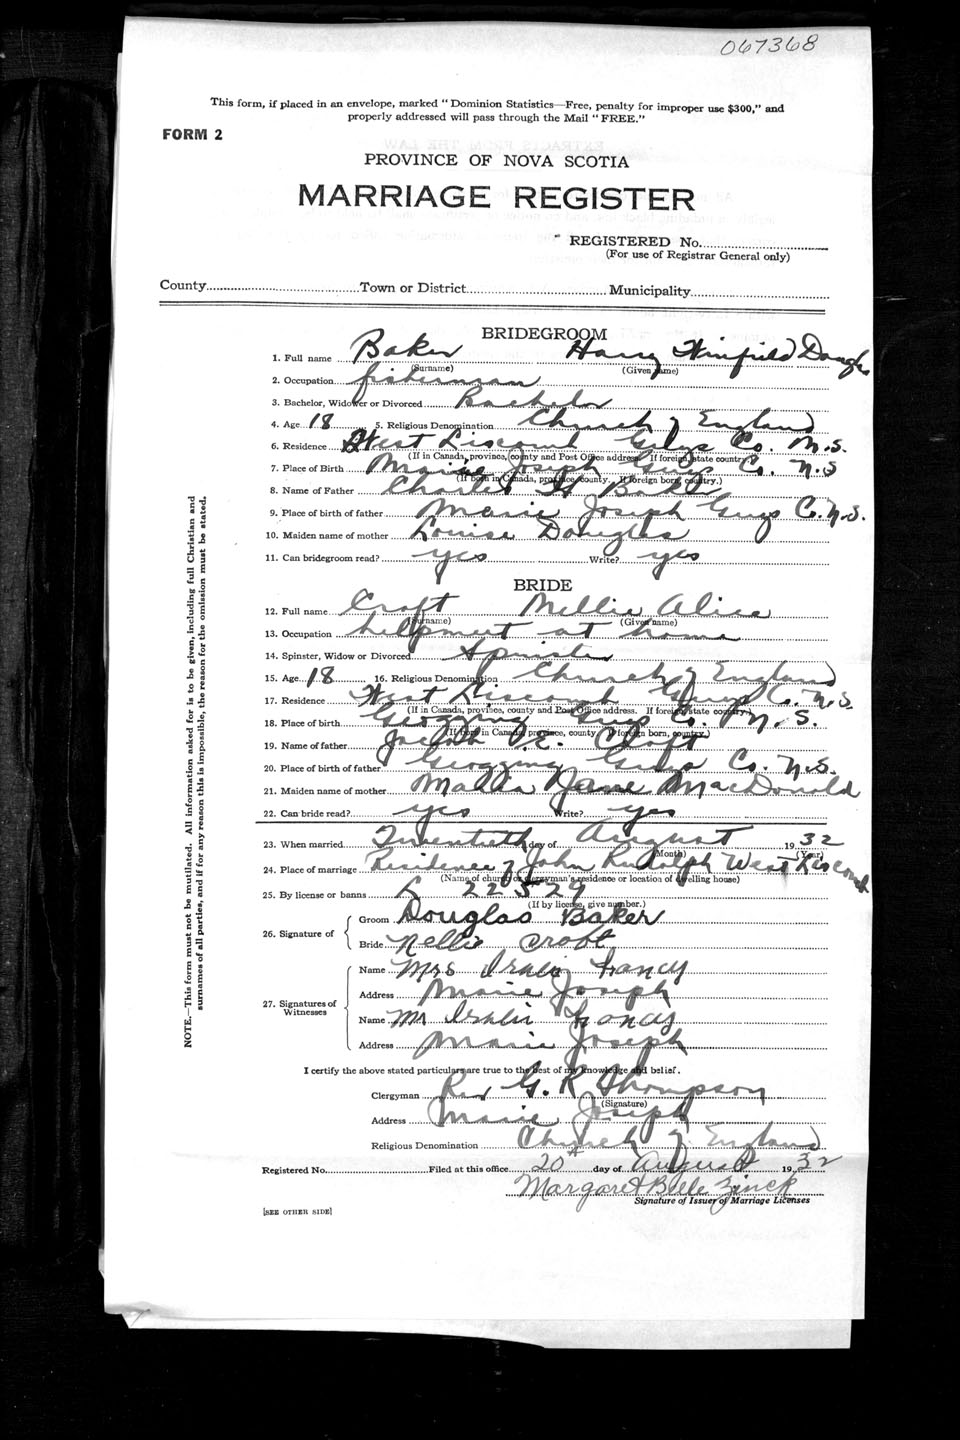 067368
This form, if placed in an envelope, marked "Dominion Statistics—Free, penalty for improper use $300," and
properly addressed will pass through the Mail "FREE."
FORM 2
PROVINCE OF NOVA SCOTIA
MARRIAGE REGISTER
REGISTERED No.
(For use of Registrar General only)
County Town or District Municipality
BRIDEGROOM
1. Full name Baker Harry Winfield Douglas
(Surname) (Given name)
2. Occupation fisherman
3. Bachelor, Widower or Divorced Bachelor
4. Age 18 5. Religious Denomination Church of England
6. Residence West Liscomb Guys Co. N.S.
(If in Canada, province, county and Post Office address. If foreign, state country.)
7. Place of Birth Marie Joseph Guys Co. N.S
(If born in Canada, province, county. If foreign born, country.)
8. Name of Father Charles H Baker
9. Place of birth of father Marie Joseph Guys Co. N.S.
10. Maiden name of mother Louise Douglas
11. Can bridegroom read? yes Write? yes
BRIDE
12. Full name Croft Nellie Alice
(Surname) (Given name)
13. Occupation helpmeet at home
14. Spinster, Widow or Divorced Spinster
15. Age 18 16. Religious Denomination Church of England
17. Residence West Liscomb Guys Co. N.S.
(If in Canada, province, county and Post Office address. If foreign, state country.)
18. Place of birth Guys Co. N.S.
(If born in Canada, province, county. If foreign born, country.)
19. Name of father Joseph Croft
20. Place of birth of father Guys Co. N.S.
21. Maiden name of mother Jane MacDonald
22. Can bride read? yes Write? yes
23. When married Twentieth day of August 1932
(Month) (Year)
24. Place of marriage Residence of John Rudolph West Liscomb
(Name of church or clergyman's residence or location of dwelling house)
25. By license or banns L 22529
(If by license, give number.)
26. Signature of
Groom Douglas Baker
Bride Nellie Croft
27. Signatures of Witnesses
Name Mrs
Address Marie Joseph
Name Mr
Address Marie Joseph
I certify the above stated particulars are true to the best of my knowledge and belief.
Clergyman Rev G. R Thompson
(Signature)
Address Marie Joseph
Religious Denomination Church of England
Registered No. Filed at this office 20th day of August 1932
Margaret Belle Zinck
Signature of Issuer of Marriage Licenses
[SEE OTHER SIDE]
NOTE.—This form must not be mutilated. All information asked for is to be given, including full Christian and
surnames of all parties, and if for any reason this is impossible, the reason for the omission must be stated.